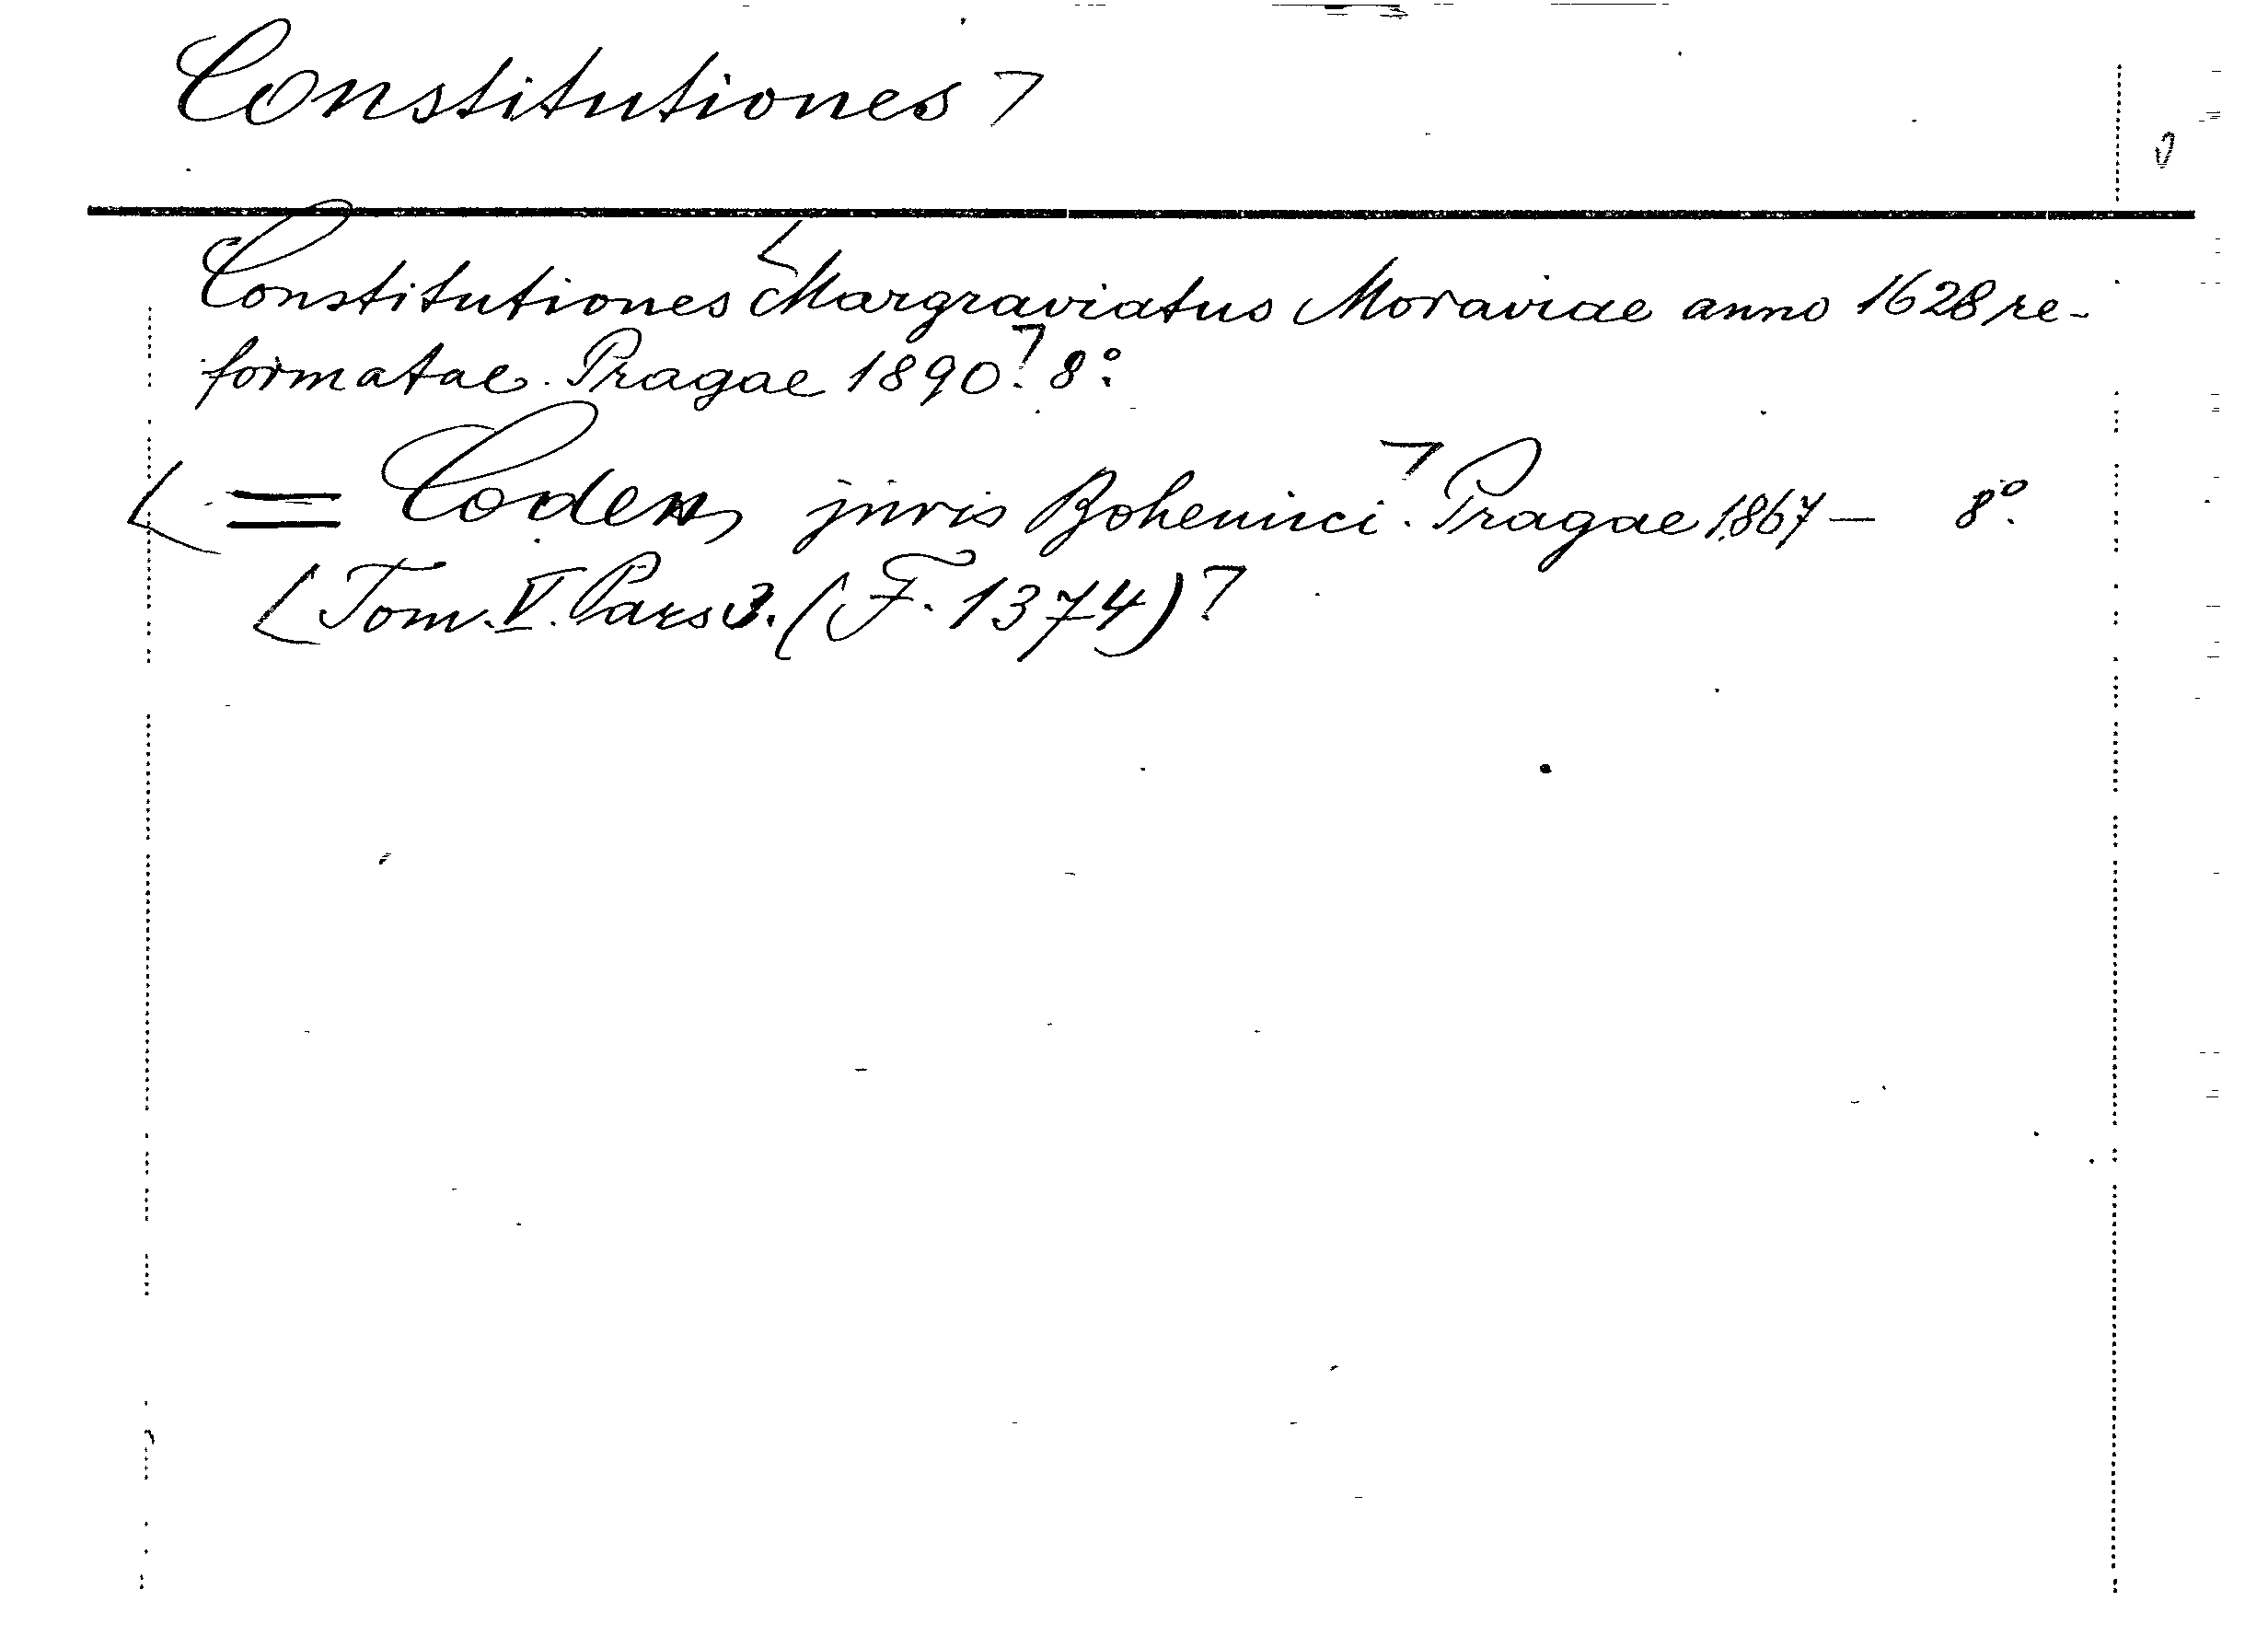 Constitutiones
Constitutiones Margraviatus Moraviae anno 1628 re-
formatae. Pragae 1890. 8°.
= Codex juris Bohemici. Pragae 1867 — 8°.
Tom. V. Pars 3. (F. 1374)